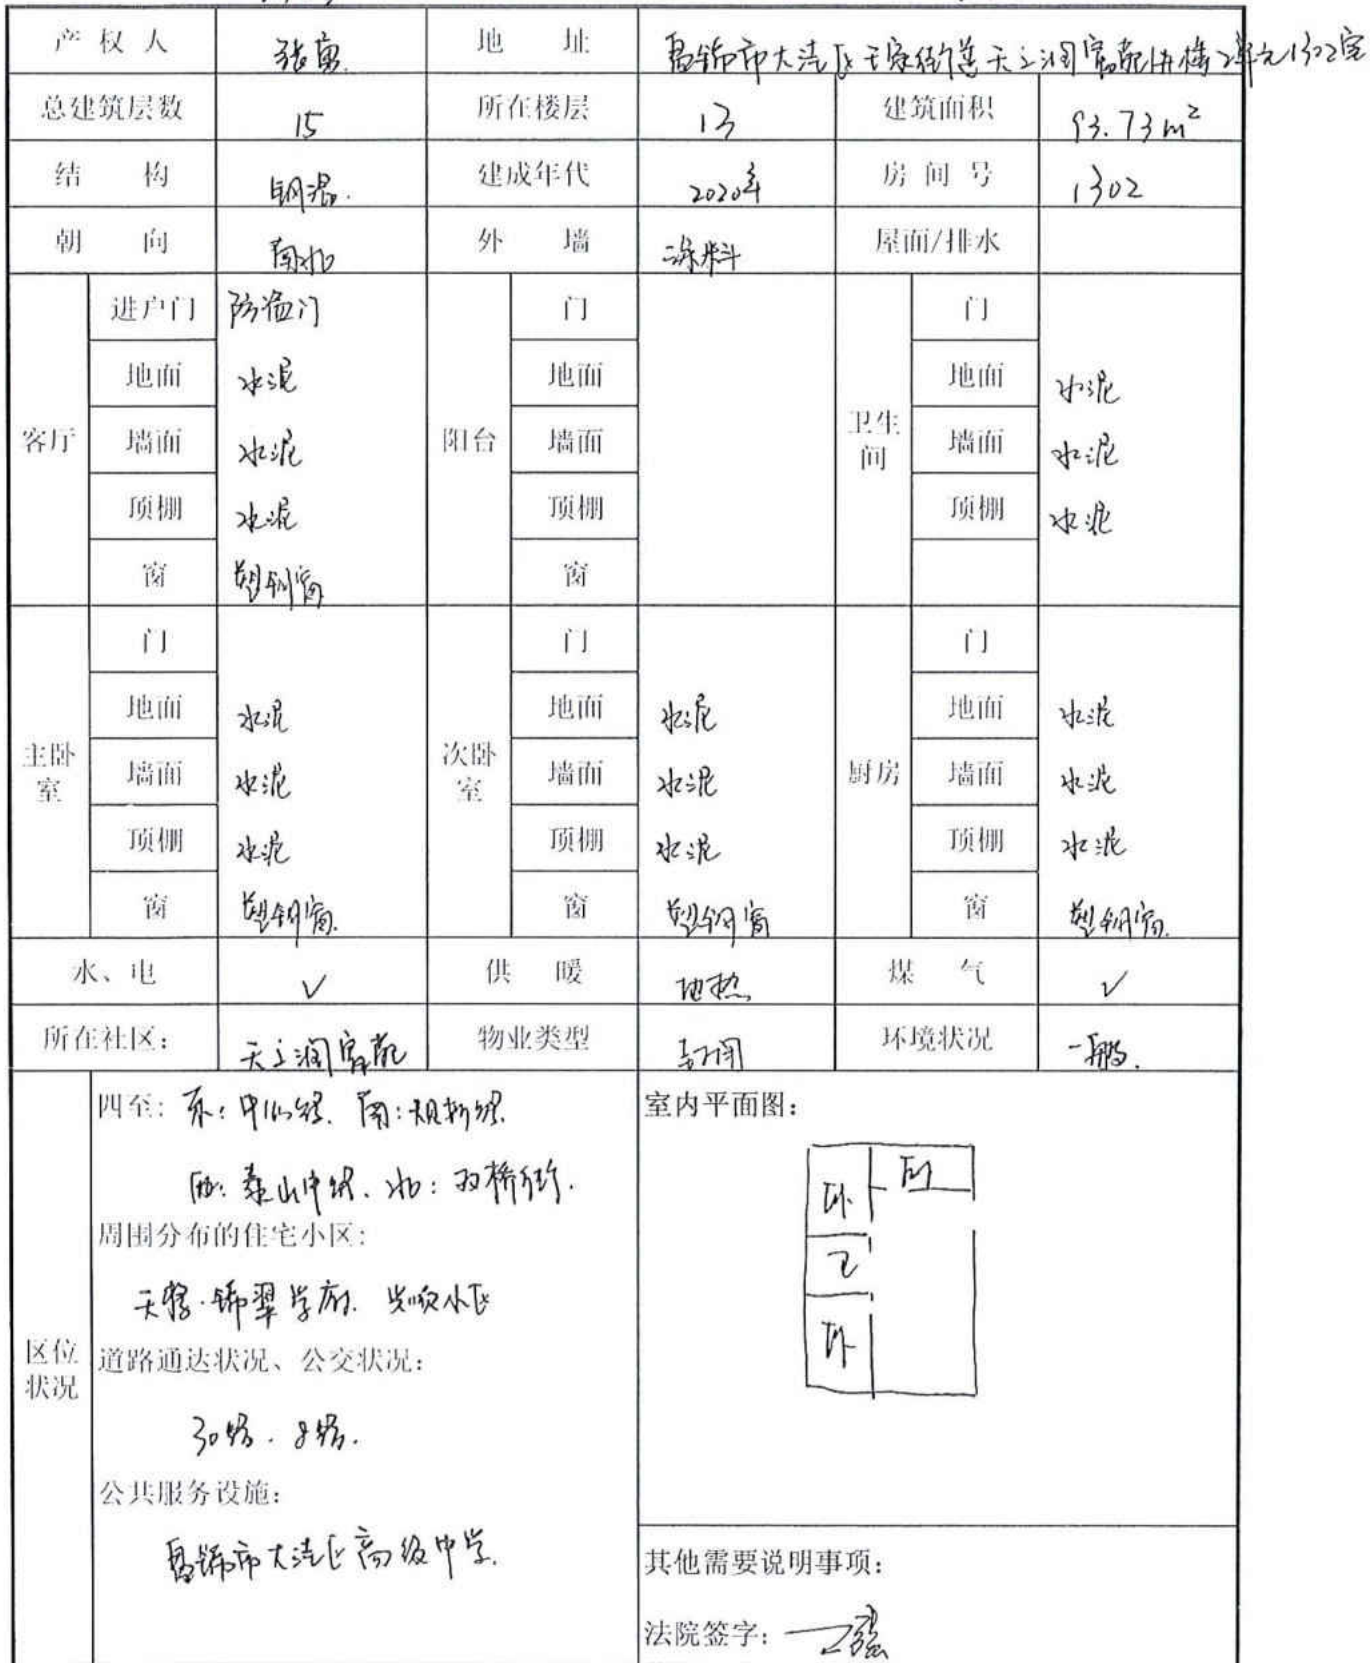 产权人 张 地址 盘锦市大洼区 街道天立润富苑 楼2单元1302室
总建筑层数 15 所在楼层 13 建筑面积 93.73m²
结构 钢混. 建成年代 2020年 房间号 1302
朝向 南北 外墙 涂料 屋面/排水
客厅 进户门 防盗门 阳台 门 卫生间 门
地面 水泥 地面 地面 水泥
墙面 水泥 墙面 墙面 水泥
顶棚 水泥 顶棚 顶棚 水泥
窗 塑钢窗 窗
主卧室 门 次卧室 门 厨房 门
地面 水泥 地面 水泥 地面 水泥
墙面 水泥 墙面 水泥 墙面 水泥
顶棚 水泥 顶棚 水泥 顶棚 水泥
窗 塑钢窗. 窗 塑钢窗 窗 塑钢窗.
水、电 ✓ 供暖 地热 煤气 ✓
所在社区: 天立润富苑 物业类型 封闭 环境状况 一般.
区位状况
四至: 东: 中心路. 南:
西: 泰山中路. 北: 双桥街.
周围分布的住宅小区:
锦翠学府. 小区
道路通达状况、公交状况:
30路. 8路.
公共服务设施:
盘锦市大洼区高级中学.
室内平面图:
卧 厨
卫
卧
其他需要说明事项:
法院签字: